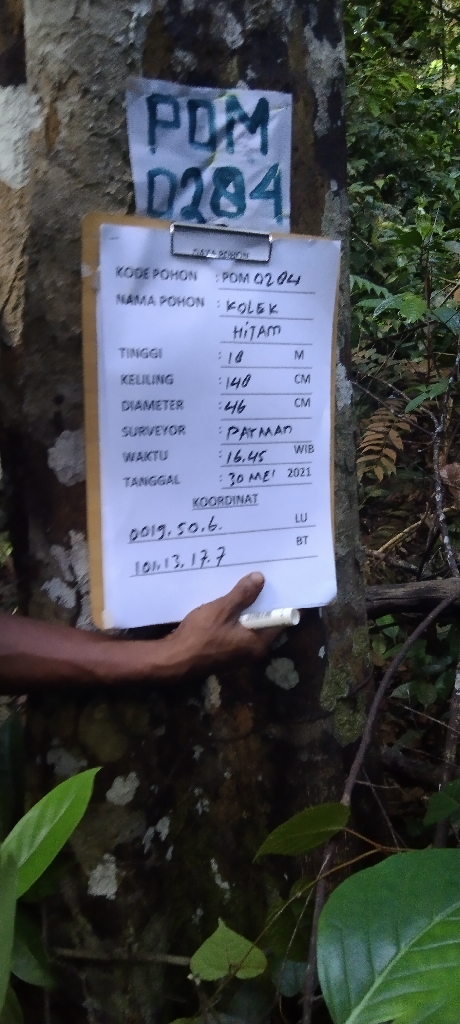 PDM
0284
DATA POHON
KODE POHON : PDM 0284
NAMA POHON : KOLEK
HITAM
TINGGI : 18 M
KELILING : 148 CM
DIAMETER : 46 CM
SURVEYOR : PAYMAN
WAKTU : 16.45 WIB
TANGGAL : 30 MEI 2021
KOORDINAT
0019.50.6. LU
101.13.17.7 BT